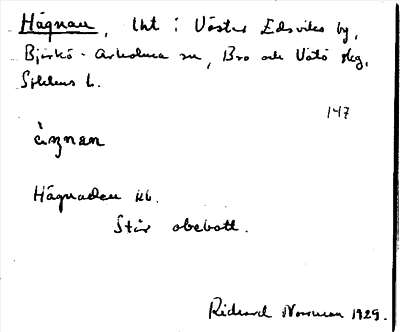 Hågnau, lht i Väster Edsviks by,
Björkö-Arholma sn, Bro och Vätö skg,
Sthlms l.
147
Hågnaden kb.
Står obebott.
Richard Norrman 1929.